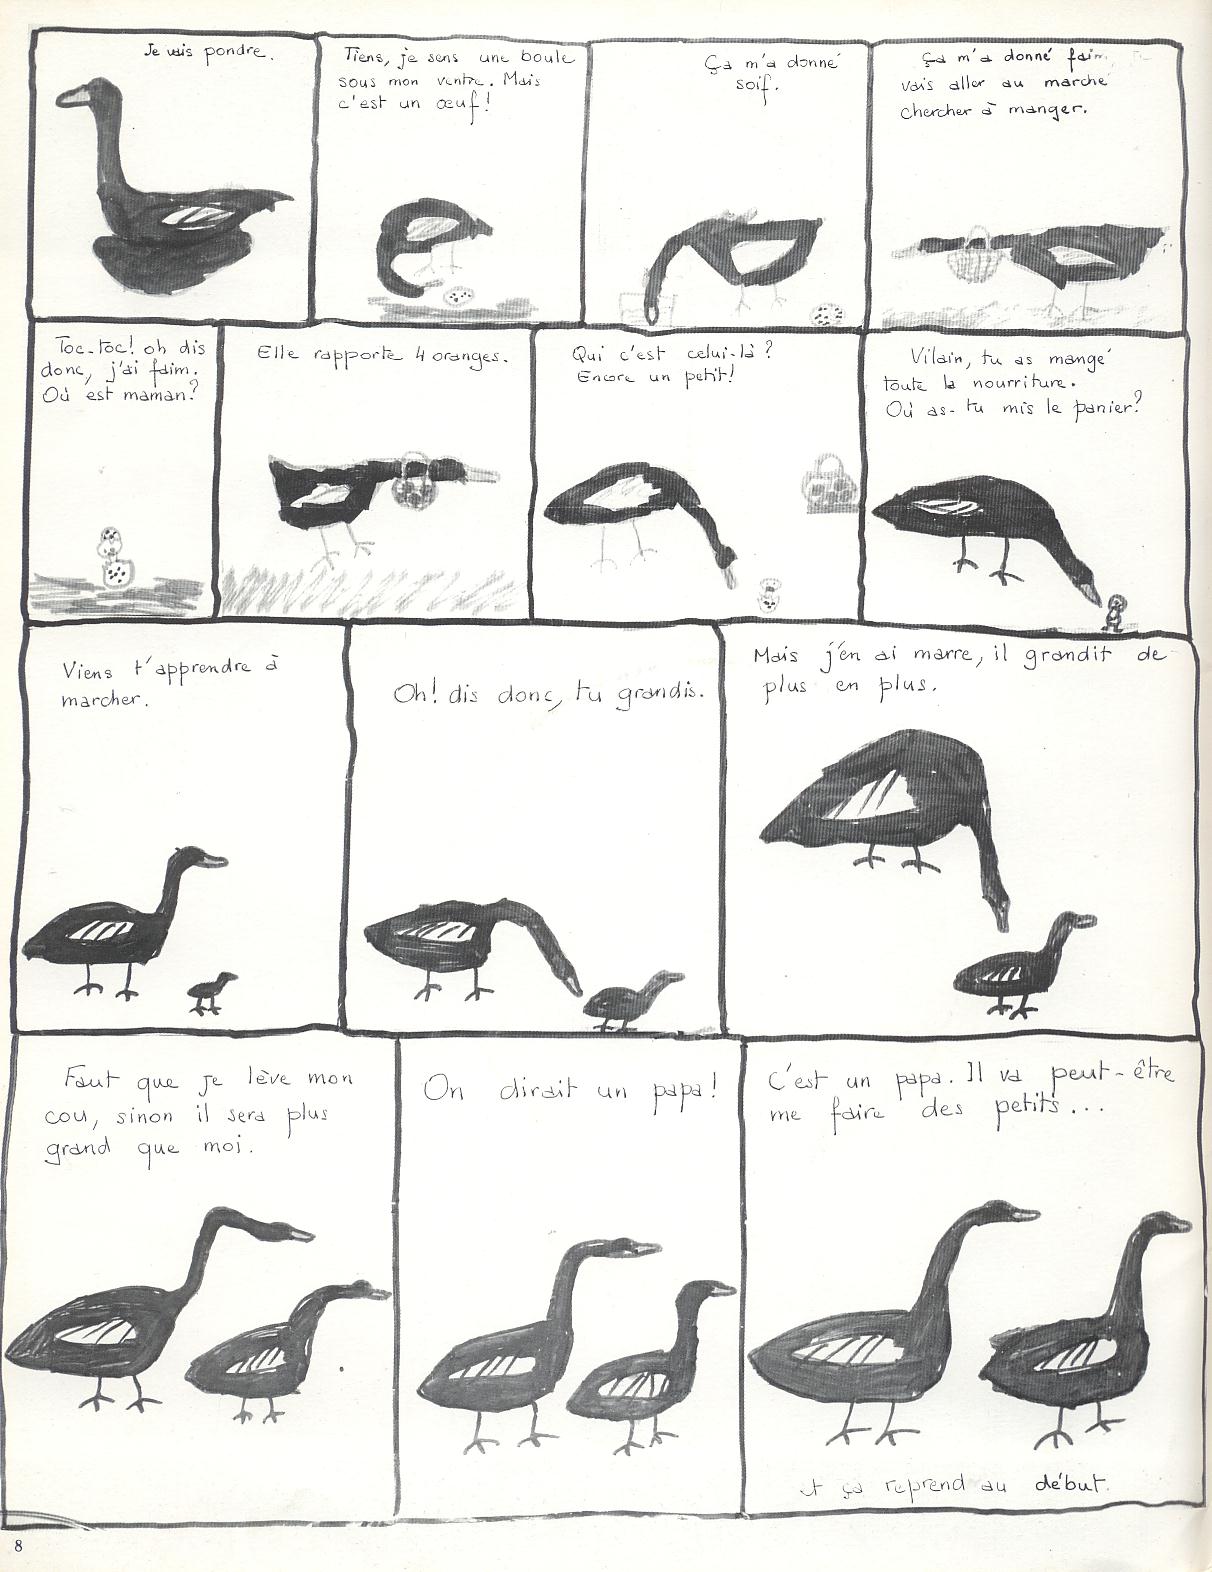 Je vais pondre.
Tiens, je sens une boule
sous mon ventre. Mais
c'est un œuf!
Ça m'a donné
soif.
Ça m'a donné faim,
vais aller au marché
chercher à manger.
Toc-toc! oh dis
donc, j'ai faim.
Où est maman?
Elle rapporte 4 oranges.
Qui c'est celui-là?
Encore un petit!
Vilain, tu as mangé
toute la nourriture.
Où as-tu mis le panier?
Viens t'apprendre à
marcher.
Oh! dis donc, tu grandis.
Mais j'en ai marre, il grandit de
plus en plus.
Faut que je lève mon
cou, sinon il sera plus
grand que moi.
On dirait un papa!
C'est un papa. Il va peut-être
me faire des petits...
et ça reprend au début.
8